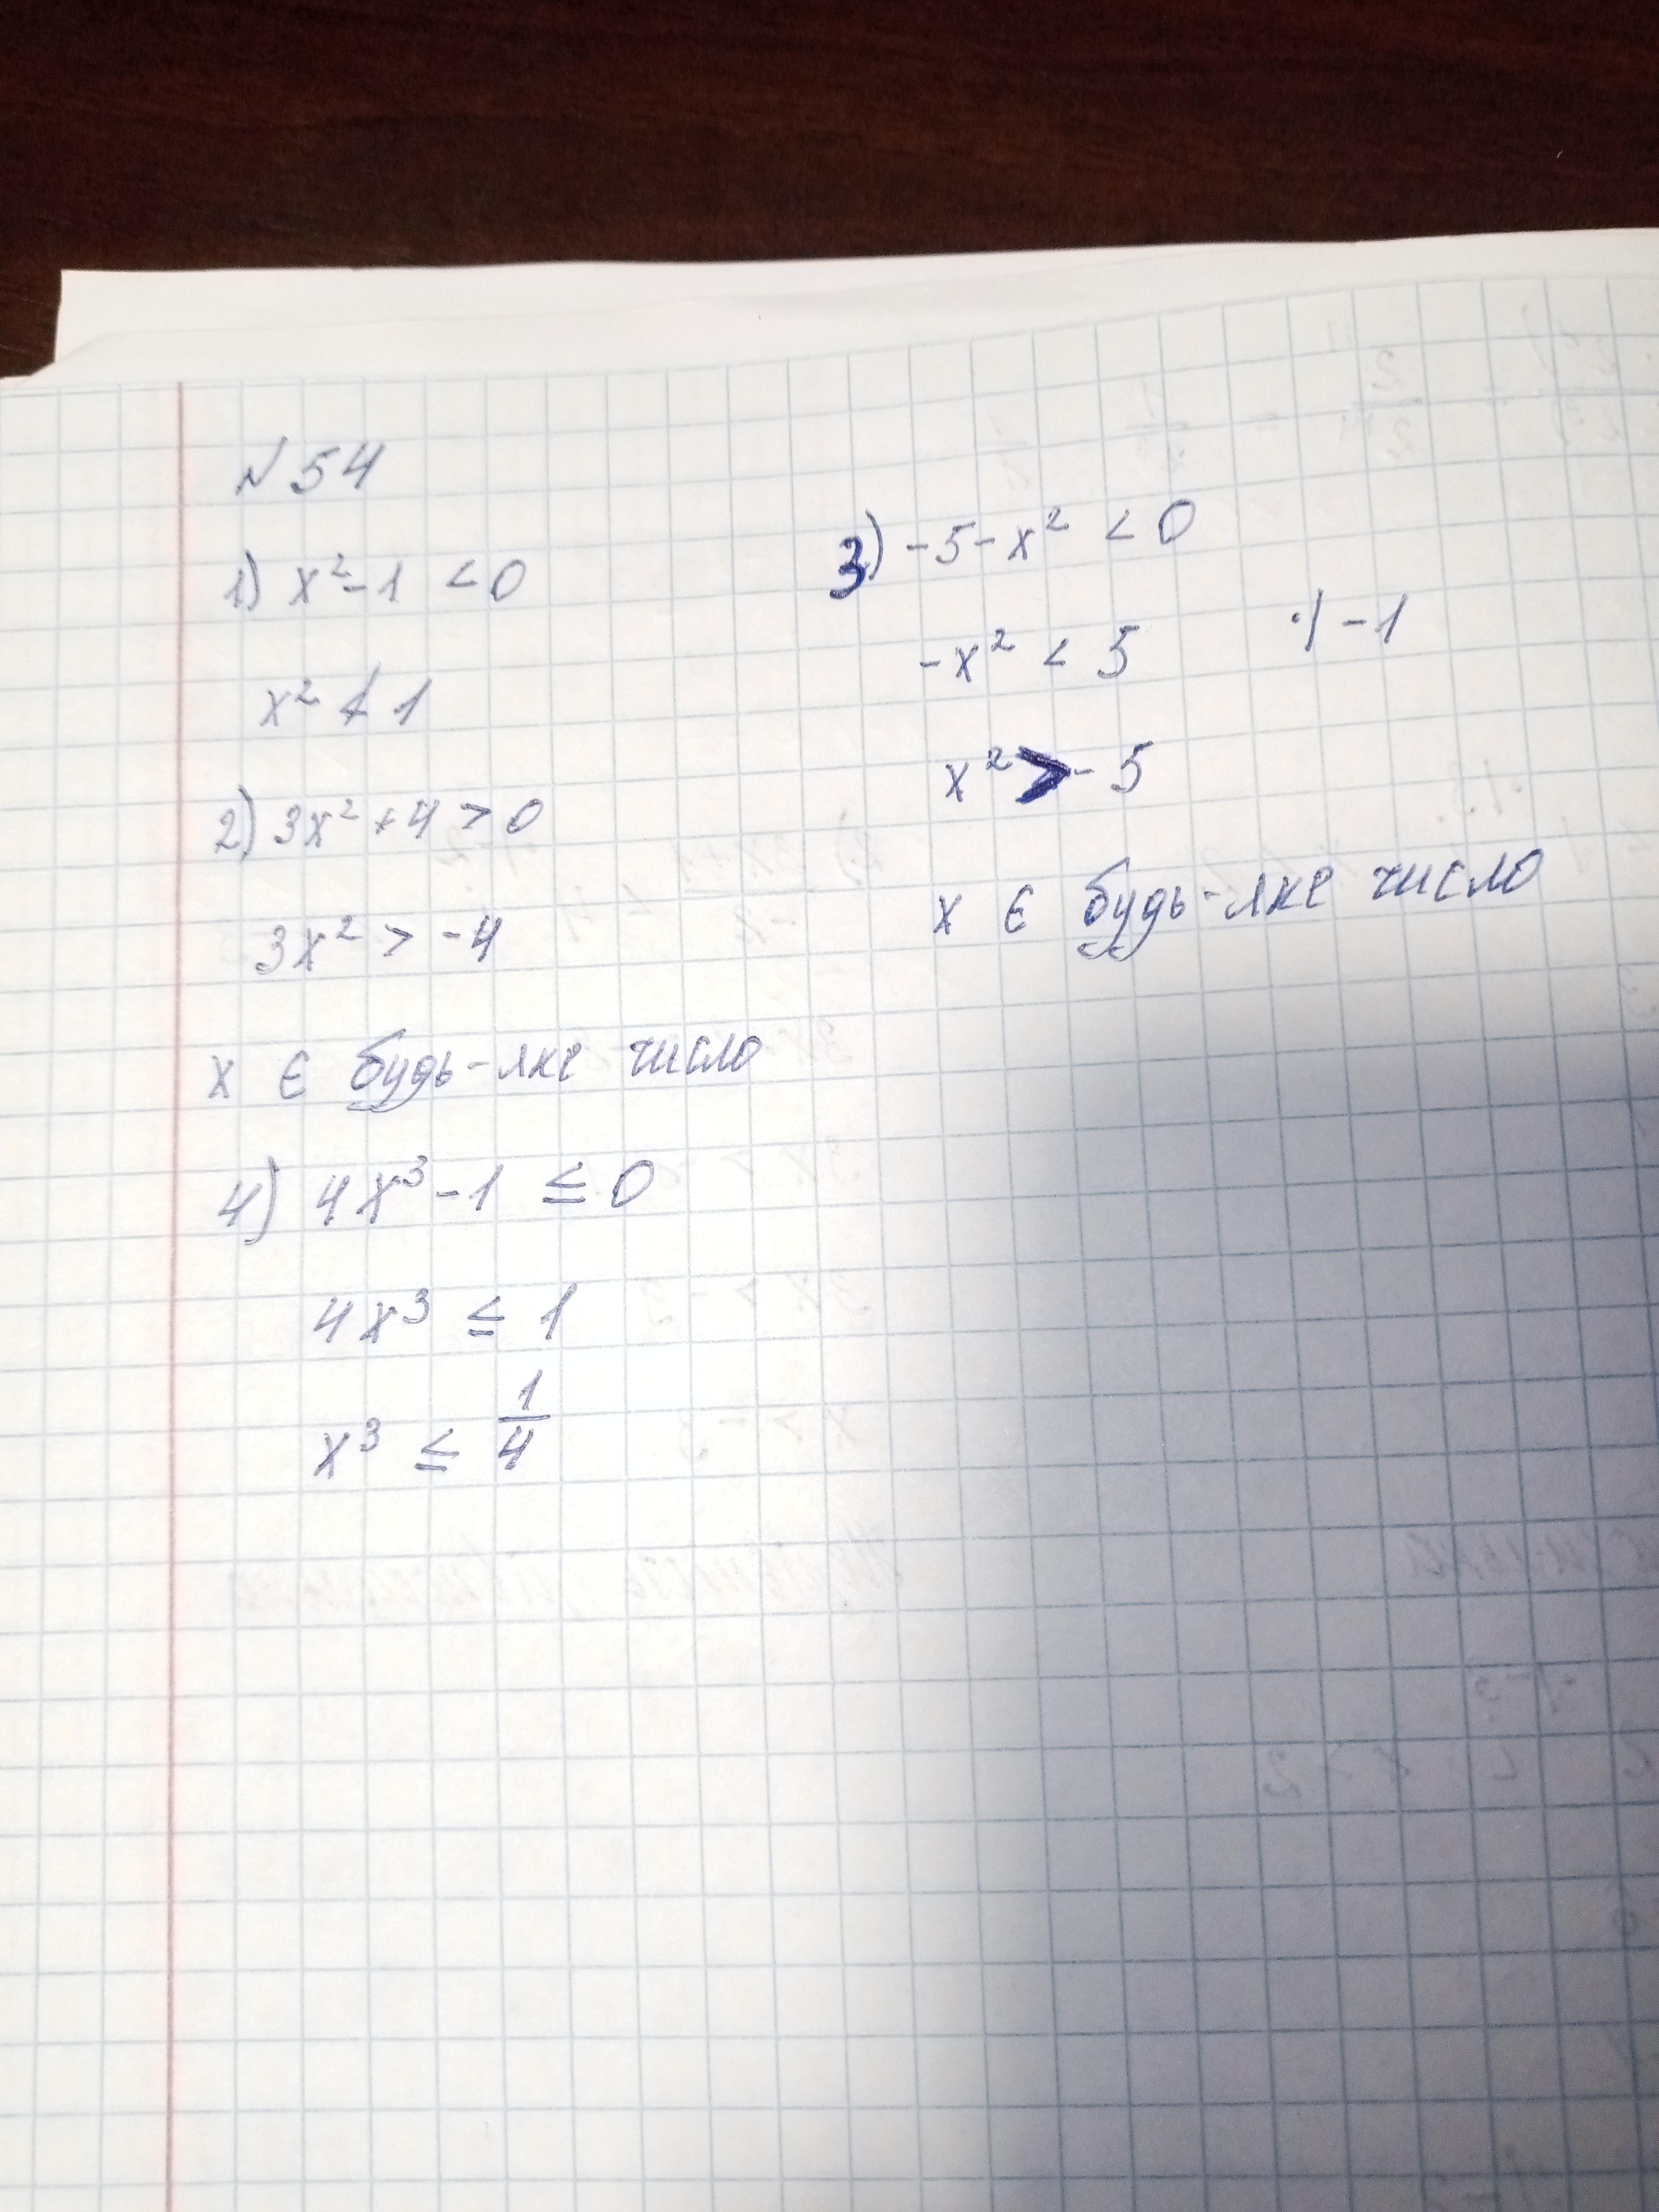 N 54
1) x² - 1 < 0
x² < 1
2) 3x² + 4 > 0
3x² > -4
x є будь-яке число
4) 4x³ - 1 ≤ 0
4x³ ≤ 1
x³ ≤ 1/4
3) -5 - x² < 0
-x² < 5 ·| -1
x² > -5
x є будь-яке число